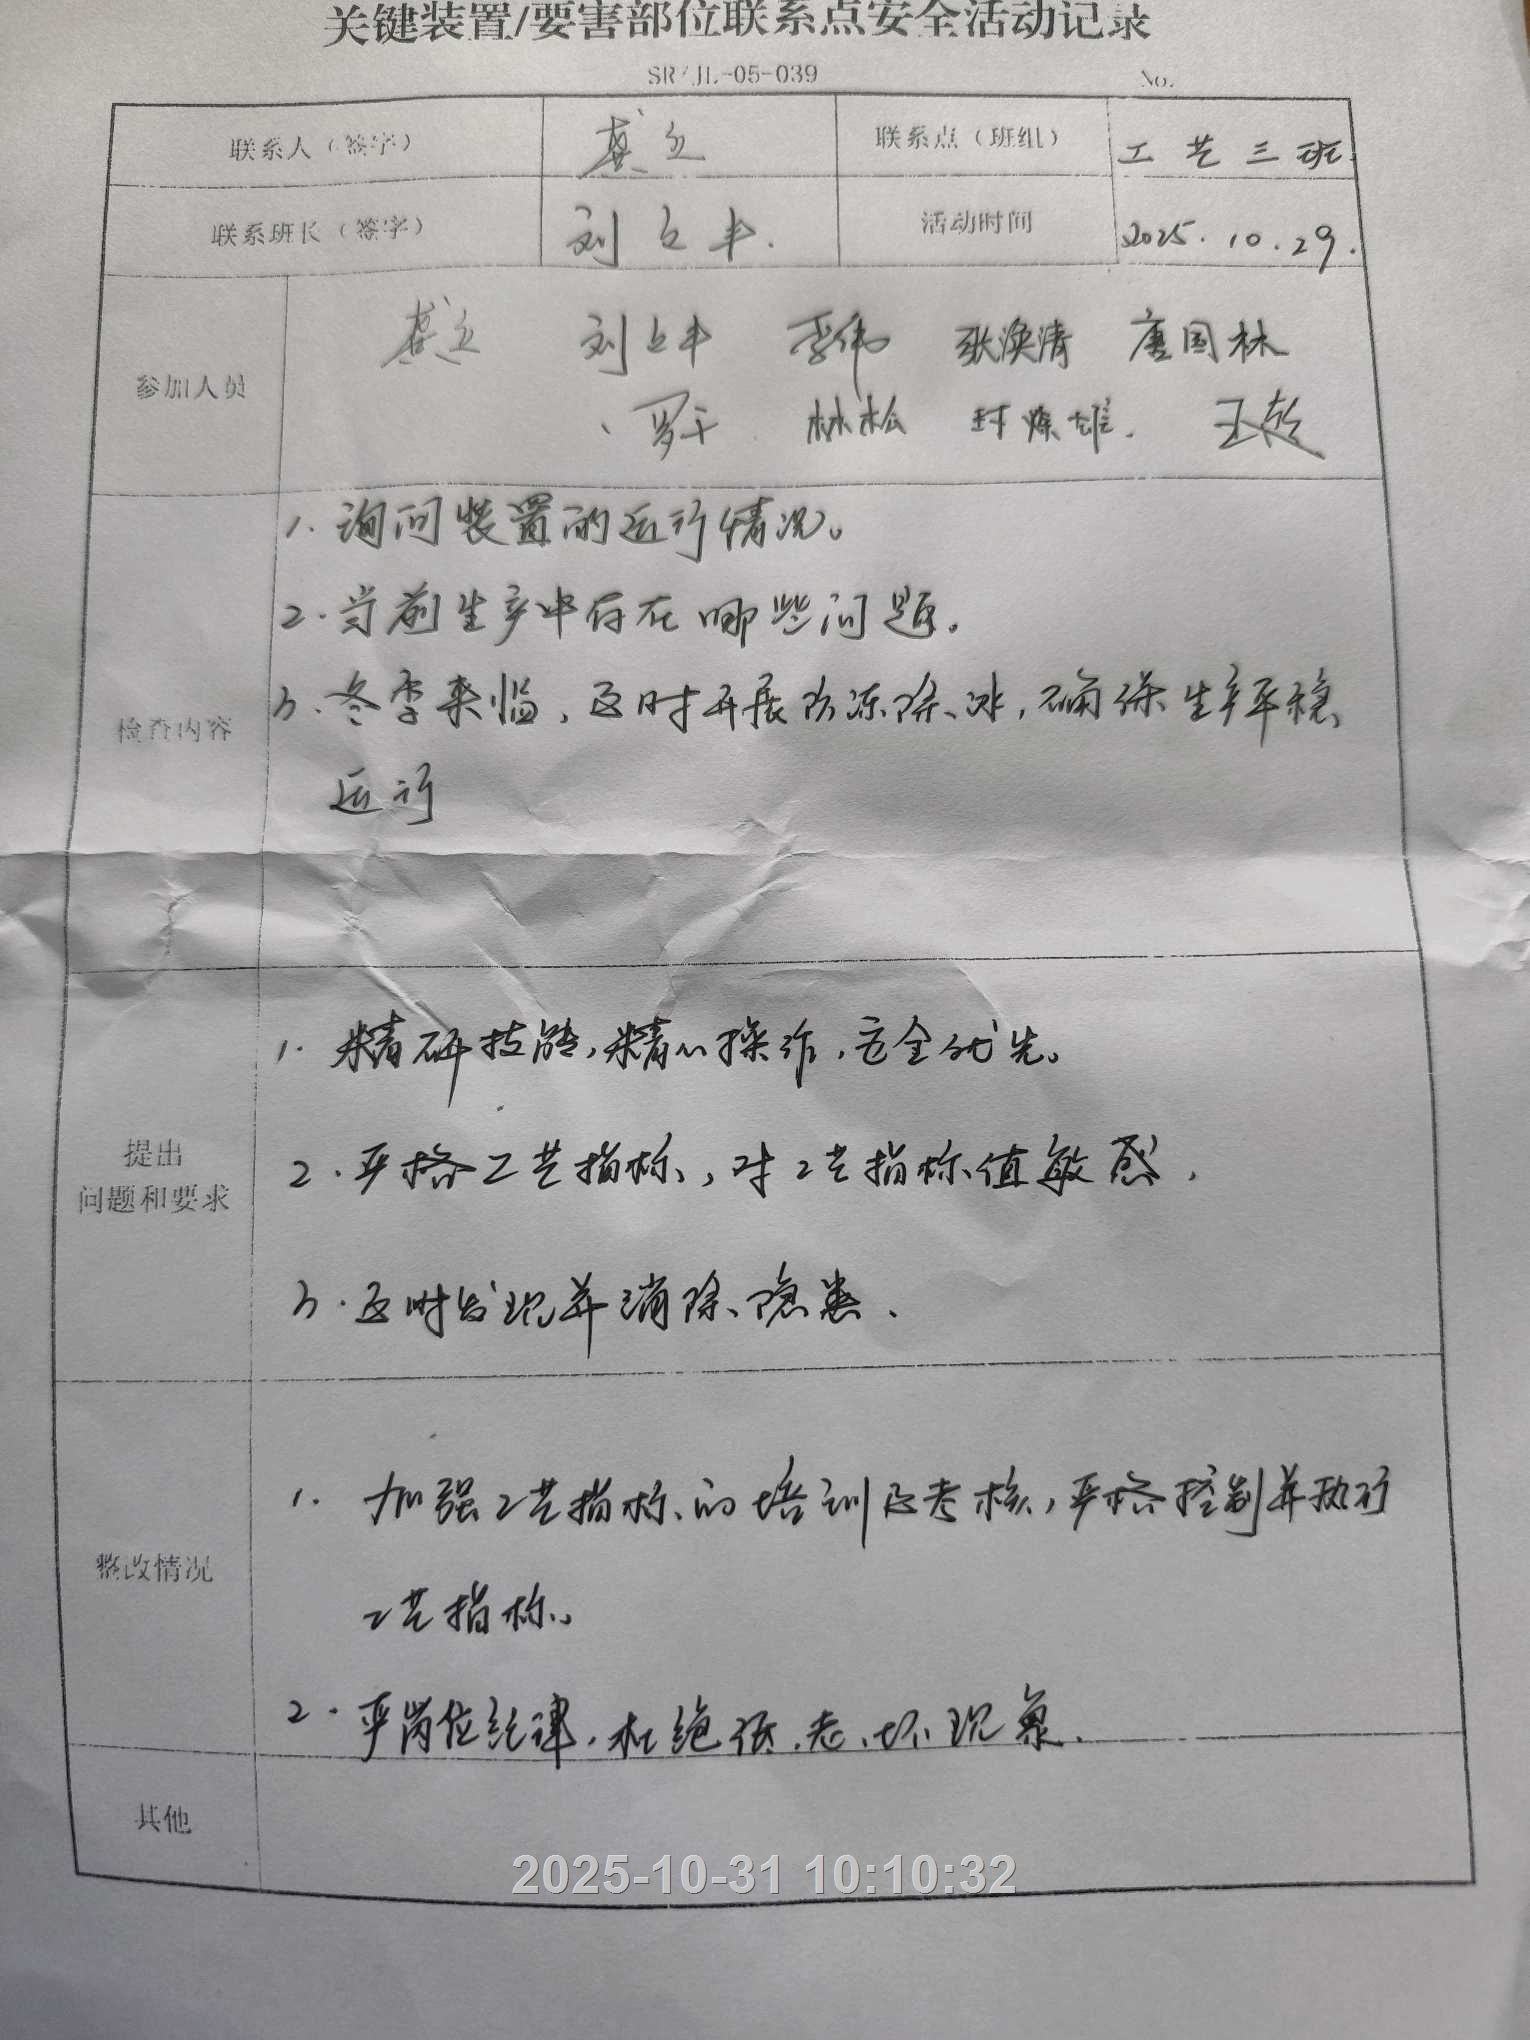 关键装置/要害部位联系点安全活动记录
SR/JL-05-039 No.
联系人（签字） 龚立 联系点（班组） 工艺三班.
联系班长（签字） 刘立丰. 活动时间 2025.10.29.
参加人员
龚立 刘立丰 李伟 张焕清 唐国林
罗千 林松 封焕雄. 王龙
检查内容
1. 询问装置的运行情况。
2. 当前生产中存在哪些问题。
3. 冬季来临，及时开展防冻除冰，确保生产平稳
运行
提出
问题和要求
1. 精研技能，精心操作，安全优先。
2. 严格工艺指标，对工艺指标值敏感.
3. 及时发现并消除隐患.
整改情况
1. 加强工艺指标的培训及考核，严格控制并执行
工艺指标。
2. 严岗位纪律，杜绝低.老.坏现象.
其他
2025-10-31 10:10:32